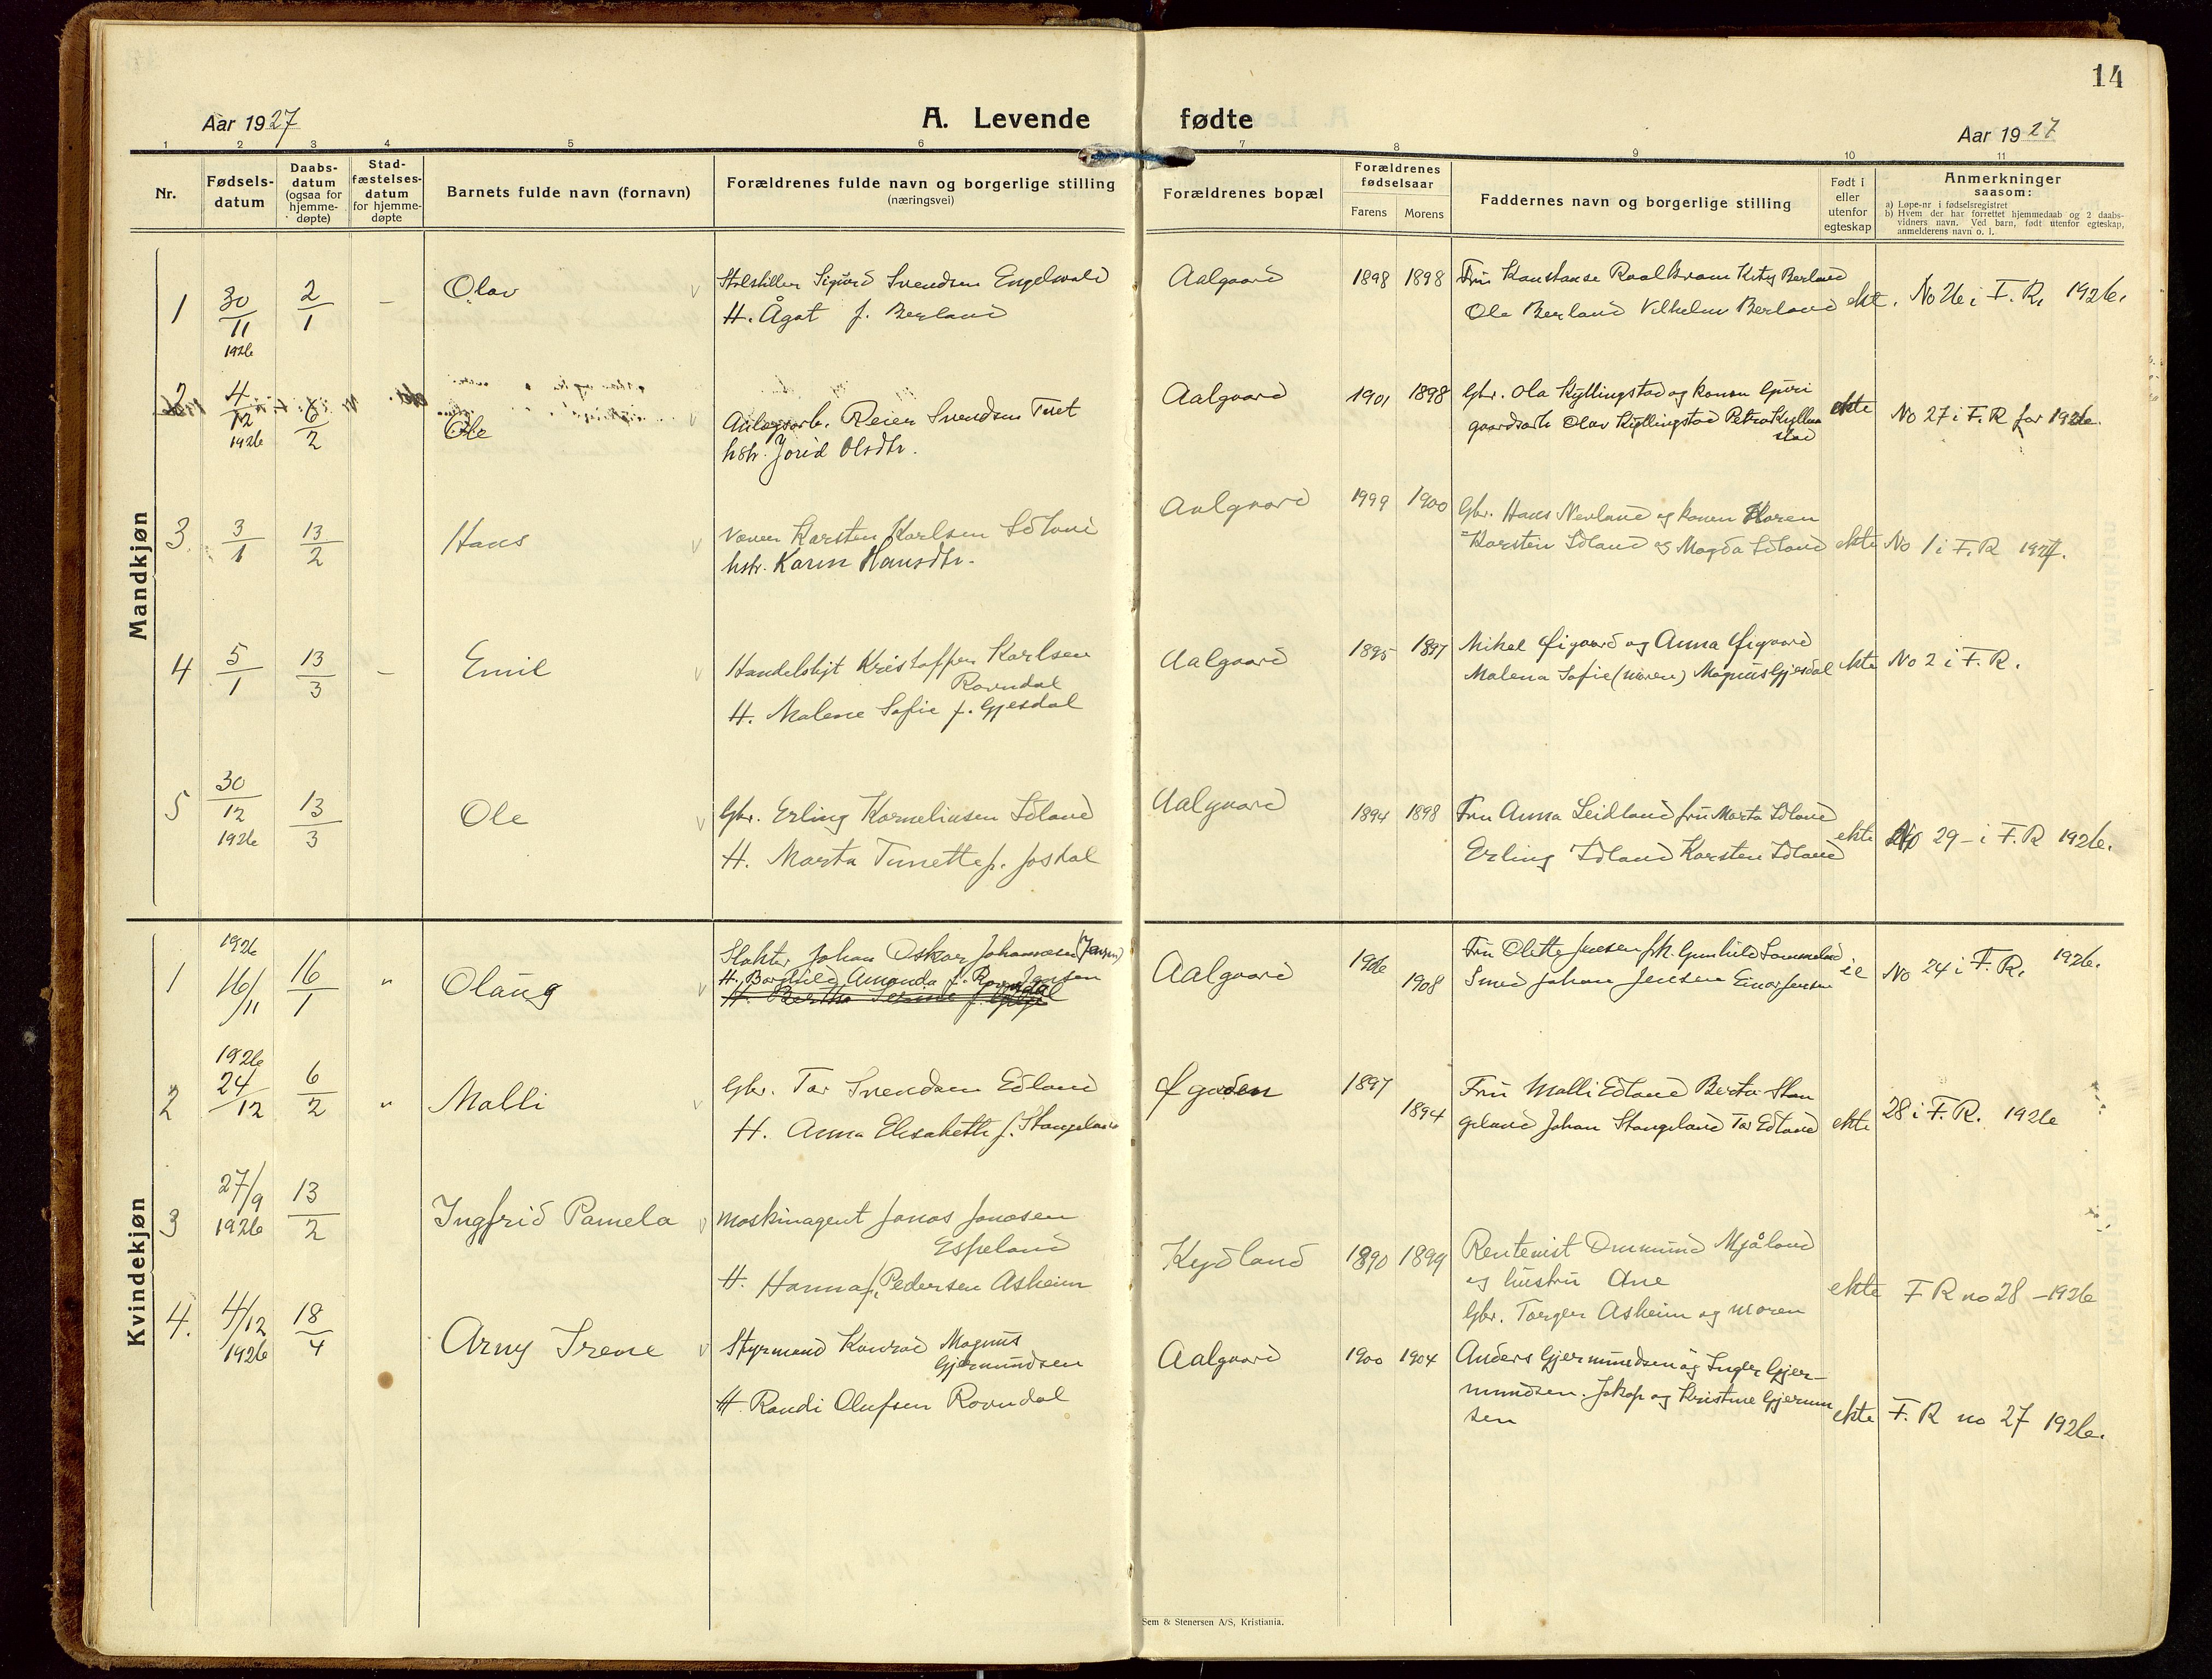 14
Aar 1927
A. Levende fødte
Aar 1927
1 2 3 4 5 6 7 8 9 10 11
Nr.
Fødsels-
datum
Daabs-
datum
(ogsaa for
hjemme-
døpte)
Stad-
fæstelses-
datum
for hjemme-
døpte
Barnets fulde navn (fornavn)
Forældrenes fulde navn og borgerlige stilling
(næringsvei)
Forældrenes bopæl
Forældrenes
fødselsaar
Farens Morens
Faddernes navn og borgerlige stilling
Født i
eller
utenfor
egteskap
Anmerkninger
saasom:
a) Løpe-nr i fødselsregistret
b) Hvem der har forrettet hjemmedaab og 2 daabs-
vidners navn. Ved barn, født utenfor egteskap,
anmelderens navn o. l.
Mandkjøn
1 30/11 1926 2/1 – Olav
Sigurd Svendsen Engelsvold
H. Ågot f. Berland
Aalgaard 1898 1898
Fru Konstanse Raalkvam Kity Berland
Ole Berland Vilhelm Berland
ekt. No 26 i F. R. 1926.
2 4/12 1926 6/2 Ole
Anlegsarb. Reier Svendsen Tvet
hstr. Jorid Olsdtr.
Aalgaard 1901 1898
Gbr. Ola Kyllingstad og konen Guri
gaardsarb Olav Kyllingstad Petra Kylling
stad
ekte No 27 i F. R for 1926.
3 3/1 13/2 Hans
Væver Karsten Karlsen Edland
hstr. Karen Hansdtr.
Aalgaard 1999 1900
Gbr. Hans Nevland og konen Karen
Karsten Edland og Magda Edland
ekte No 1 i F. R 1927.
4 5/1 13/3 – Emil
Handelsbjt Kristoffer Karlsen
Ravndal
H. Malene Sofie f. Gjesdal
Aalgaard 1895 1897
Mikal Øigaard og Anna Øigaard
Malena Sofie (moren) Magnus Gjesdal
ekte No 2 i F. R.
5 30/12 1926 13/3 Ole
Gbr. Erling Korneliusen Edland
H. Marta Tunette f. Josdal
Aalgaard 1894 1898
Fru Anna Leidland fru Marta Edland
Erling Edland Karsten Edland
ekte No 29 – i F. R 1926.
Kvindekjøn
1 1926 16/11 16/1 " Olaug
Slakter Johan Oskar Johannesen (Jensen)
H. Borghild Amanda f. Ravndal
Aalgaard 1906 1908
Fru Olette Jensen frk. Gunhild Sommeland
Smed Johan Jensen Einar Jensen
ie No 24 i F. R. 1926.
2 1926 24/12 6/2 " Malli
Gbr. Tor Svendsen Edland
H. Anna Elisabeth f. Stangeland
Øgaden 1897 1894
Fru Malli Edland Berta Stan
geland Johan Stangeland Tor Edland
ekte 28 i F. R. 1926
3 27/9 1926 13/2 Ingfrid Pamela
Maskinagent Jonas Jonasen
Espeland
H. Hanna f. Pedersen Asheim
Kydland 1890 1899
Rentenist Ommund Mjåland
og hustru Ane
Gbr. Torger Asheim og moren
ekte F R no 28 – 1926
4. 4/12 1926 18/4 Arny Irene
Styrmand Konrad Magnus
Gjermundsen
H. Randi Olufsen Ravndal
Aalgaard 1900 1904
Anders Gjermundsen og Inger Gjer–
mundsen. Jakop og Kristine Gjermun
sen
ekte F. R no 27 1926.
Sem & Stenersen A/S, Kristiania.